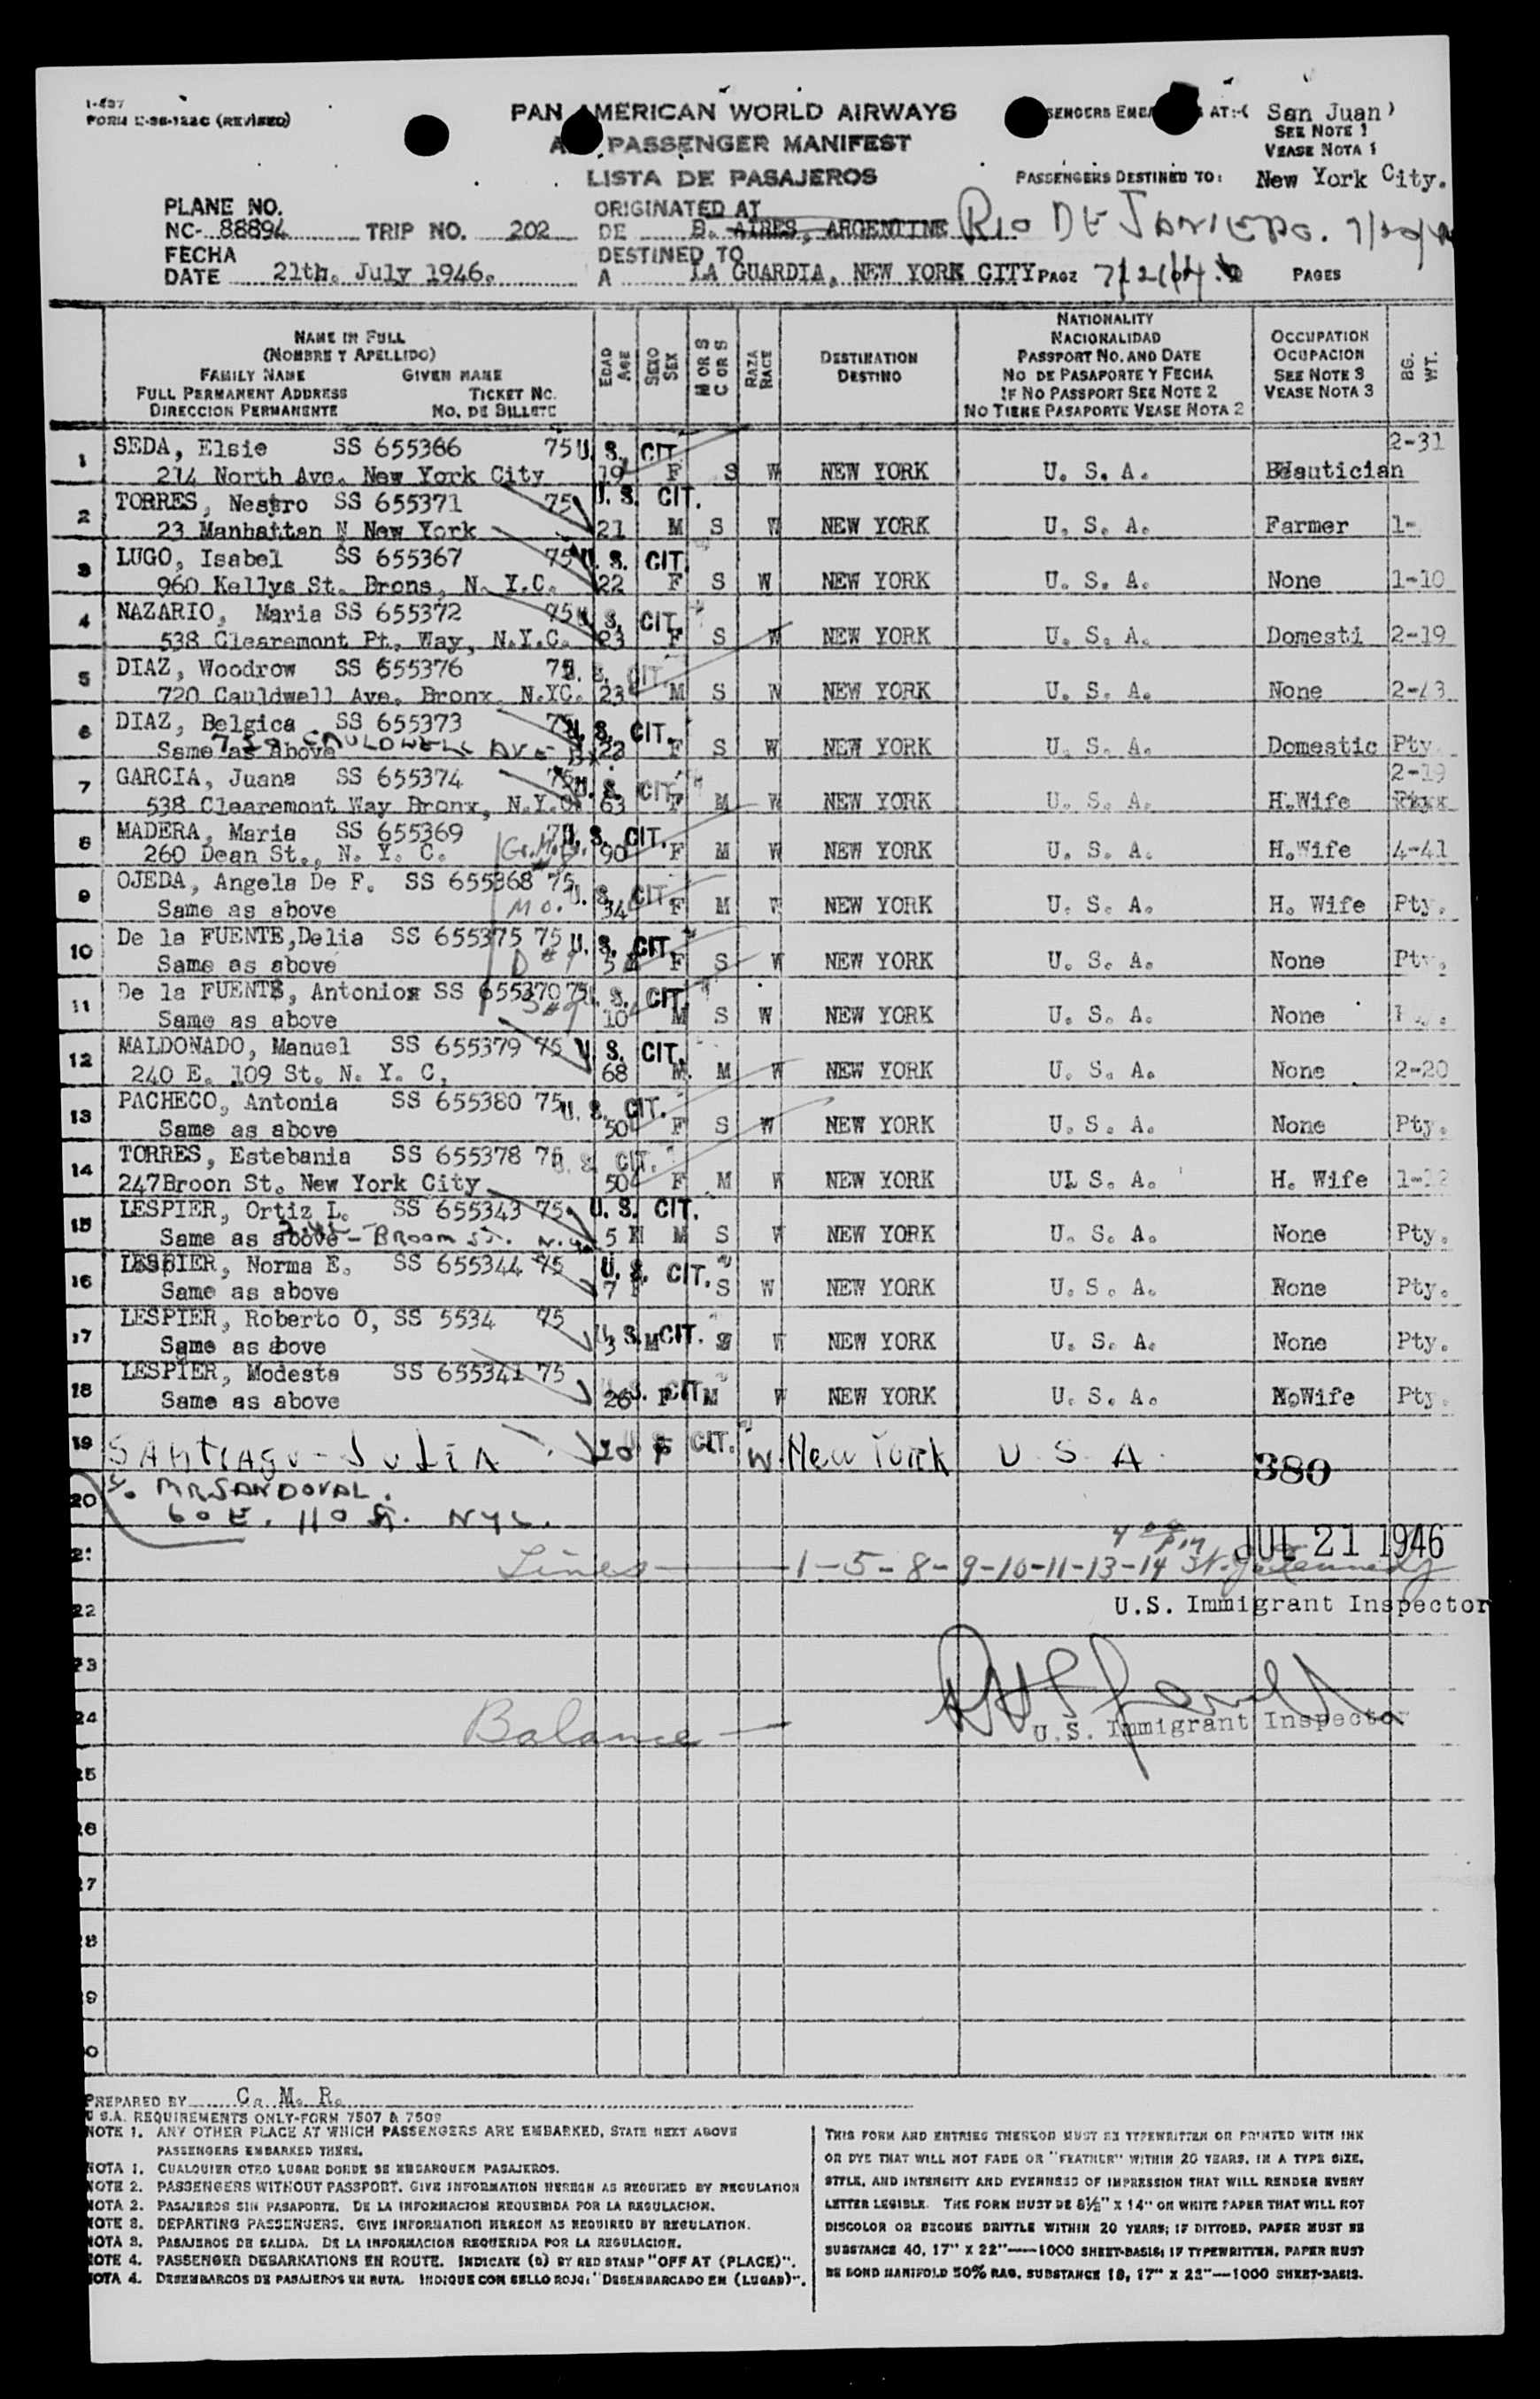 I-437
FORM (REVISED)
PAN AMERICAN WORLD AIRWAYS
PASSENGER MANIFEST
LISTA DE PASAJEROS
AT:-( San Juan)
SEE NOTE 1
VEASE NOTA 1
PASSENGERS DESTINED TO: New York City.
PLANE NO.
NC- 88894 TRIP NO. 202
ORIGINATED AT
DE B. AIRES, ARGENTINE RIO DE JANIERO.
FECHA
DATE 21th. July 1946.
DESTINED TO
A LA GUARDIA, NEW YORK CITY PAGE PAGES
NAME IN FULL
(NOMBRE Y APELLIDO)
FAMILY NAME GIVEN NAME
FULL PERMANENT ADDRESS TICKET NO.
DIRECCION PERMANENTE NO. DE BILLETE
EDAD AGE
SEXO SEX
M OR S C OR S
RAZA RACE
DESTINATION
DESTINO
NATIONALITY
NACIONALIDAD
PASSPORT NO. AND DATE
NO DE PASAPORTE Y FECHA
IF NO PASSPORT SEE NOTE 2
NO TIENE PASAPORTE VEASE NOTA 2
OCCUPATION
OCUPACION
SEE NOTE 3
VEASE NOTA 3
BG. WT.
1 SEDA, Elsie SS 655366 75 U. S. CIT. 2-31
214 North Ave. New York City 19 F S W NEW YORK U. S. A. Beautician
2 TORRES, Nestro SS 655371 75 U. S. CIT.
23 Manhattan N New York 21 M S W NEW YORK U. S. A. Farmer 1-
3 LUGO, Isabel SS 655367 75 U. S. CIT.
960 Kellys St. Brons, N. Y.C. 22 F S W NEW YORK U. S. A. None 1-10
4 NAZARIO, Maria SS 655372 75 U. S. CIT.
538 Clearemont Pt. Way, N.Y.C. 23 F S W NEW YORK U. S. A. Domesti 2-19
5 DIAZ, Woodrow SS 655376 75 U. S. CIT.
720 Cauldwell Ave. Bronx N.YC. 23 M S W NEW YORK U. S. A. None 2-43
6 DIAZ, Belgica SS 655373 75 U. S. CIT.
Same as above CAULDWELL AVE 22 F S W NEW YORK U. S. A. Domestic Pty.
7 GARCIA, Juana SS 655374 75 U. S. CIT. 2-19
538 Clearemont Way Bronx, N.Y.C. 63 F M W NEW YORK U. S. A. H.Wife
8 MADERA, Maria SS 655369 75 U. S. CIT.
260 Dean St., N. Y. C. 90 F M W NEW YORK U. S. A. H.Wife 4-41
9 OJEDA, Angela De F. SS 655368 75 U. S. CIT.
Same as above Mo. 34 F M W NEW YORK U. S. A. H. Wife Pty.
10 De la FUENTE, Delia SS 655375 75 U. S. CIT.
Same as above 5 F S W NEW YORK U. S. A. None Pty.
11 De la FUENTE, Antonio SS 655370 75 U. S. CIT.
Same as above 10 M S W NEW YORK U. S. A. None
12 MALDONADO, Manuel SS 655379 75 U. S. CIT.
240 E. 109 St. N. Y. C. 68 M M W NEW YORK U. S. A. None 2-20
13 PACHECO, Antonia SS 655380 75 U. S. CIT.
Same as above 50 F S W NEW YORK U. S. A. None Pty.
14 TORRES, Estebania SS 655378 75 U. S. CIT.
247Broon St. New York City 50 F M W NEW YORK UL S. A. H. Wife 1-12
15 LESPIER, Ortiz L. SS 655343 75 U. S. CIT.
Same as above - BROOM ST. N.Y. 5 M S W NEW YORK U. S. A. None Pty.
16 LESPIER, Norma E. SS 655344 75 U. S. CIT.
Same as above 7 F S W NEW YORK U. S. A. None Pty.
17 LESPIER, Roberto O, SS 5534 75 U. S. CIT.
Same as above 3 M S W NEW YORK U. S. A. None Pty.
18 LESPIER, Modesta SS 655341 75 U. S. CIT.
Same as above 26 F M W NEW YORK U. S. A. H.Wife Pty.
19 SANTIAGO - JULIA 20 F CIT. W. New York U S A 380
20 % MR SANDOVAL.
60 E. 110 St. NYC.
4 00 pm JUL 21 1946
21 Lines 1-5-8-9-10-11-13-14
22 U.S. Immigrant Inspector
23
24 Balance
U.S. Immigrant Inspector
25
26
27
28
29
30
PREPARED BY C. M. R.
U S.A. REQUIREMENTS ONLY-FORM 7507 & 7509
NOTE 1. ANY OTHER PLACE AT WHICH PASSENGERS ARE EMBARKED, STATE NEXT ABOVE
PASSENGERS EMBARKED THERE.
NOTA 1. CUALQUIER OTRO LUGAR DONDE SE EMBARQUEN PASAJEROS.
NOTE 2. PASSENGERS WITHOUT PASSPORT. GIVE INFORMATION HEREON AS REQUIRED BY REGULATION
NOTA 2. PASAJEROS SIN PASAPORTE. DE LA INFORMACION REQUERIDA POR LA REGULACION.
NOTE 3. DEPARTING PASSENGERS. GIVE INFORMATION HEREON AS REQUIRED BY REGULATION.
NOTA 3. PASAJEROS DE SALIDA. DE LA INFORMACION REQUERIDA POR LA REGULACION.
NOTE 4. PASSENGER DEBARKATIONS EN ROUTE. INDICATE (D) BY RED STAMP "OFF AT (PLACE)".
NOTA 4. DESEMBARCOS DE PASAJEROS EN RUTA. INDIQUE CON SELLO ROJO: "DESEMBARCADO EN (LUGAR)".
THIS FORM AND ENTRIES THEREON MUST BE TYPEWRITTEN OR PRINTED WITH INK
OR DYE THAT WILL NOT FADE OR "FEATHER" WITHIN 20 YEARS. IN A TYPE SIZE,
STYLE, AND INTENSITY AND EVENNESS OF IMPRESSION THAT WILL RENDER EVERY
LETTER LEGIBLE. THE FORM MUST BE 8½" X 14" ON WHITE PAPER THAT WILL NOT
DISCOLOR OR BECOME BRITTLE WITHIN 20 YEARS; IF DITTOED, PAPER MUST BE
SUBSTANCE 40, 17" X 22"——1000 SHEET-BASIS; IF TYPEWRITTEN, PAPER MUST
BE BOND MANIFOLD 50% RAG, SUBSTANCE 18, 17" X 22"—1000 SHEET-BASIS.